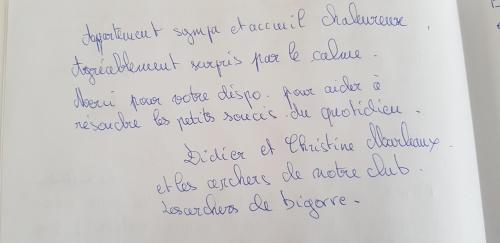 Appartement sympa et accueil chaleureux
Agréablement surpris par le calme.
Merci pour votre dispo. pour aider à
résoudre les petits soucis du quotidien.
Didier et Christine
et les archers de notre club.
Les archers de bigorre.